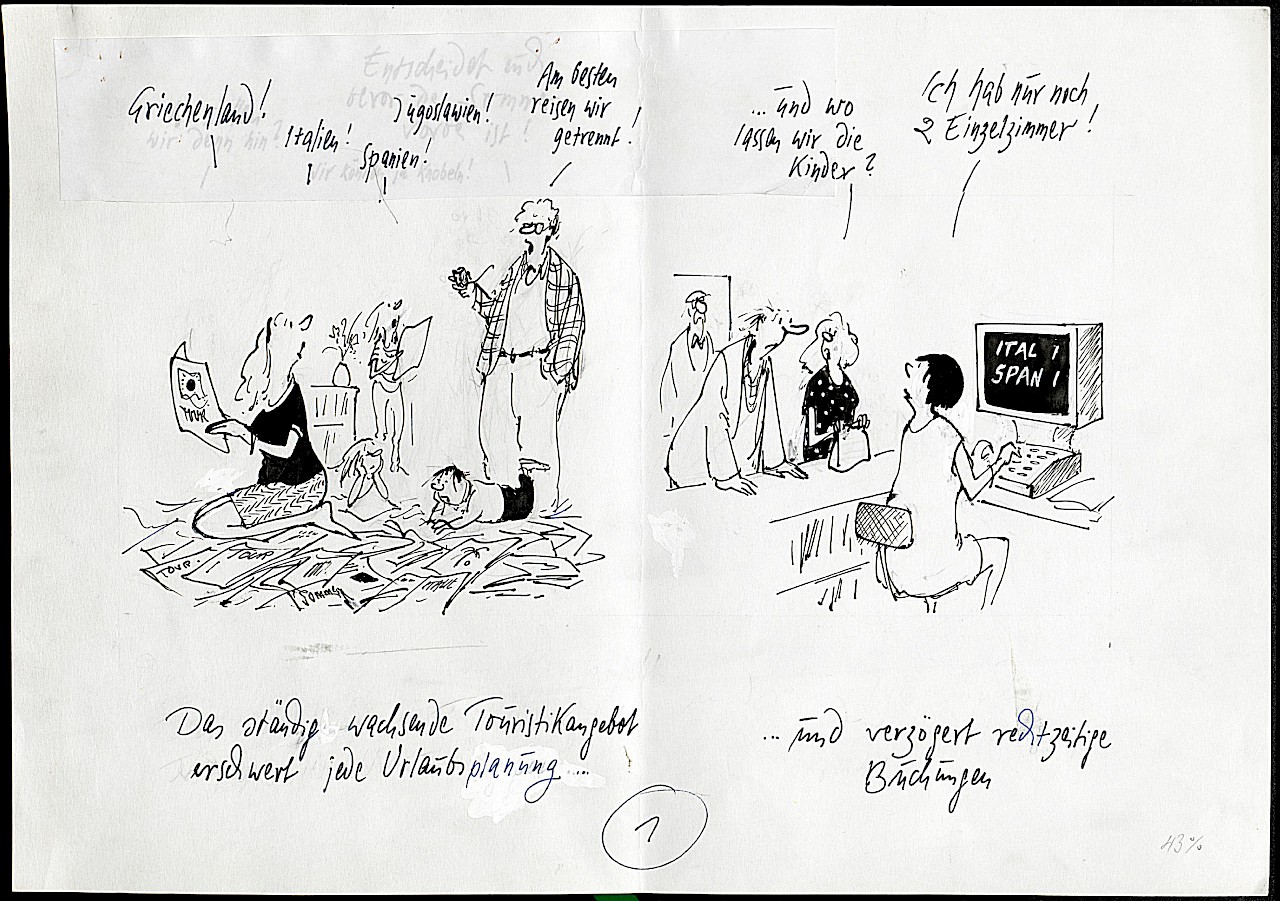 Griechenland!
Italien!
Jugoslawien!
Spanien!
Am besten
reisen wir
getrennt!
... und wo
lassen wir die
Kinder?
Ich hab nur noch
2 Einzelzimmer!
Entscheidet euch
bevor der Sommer
vorbei ist!
wir denn hin?
wir können ja knobeln!
ITAL 1
SPAN 1
TOUR
Das ständig wachsende Touristikangebot
erschwert jede Urlaubsplanung ....
... und verzögert rechtzeitige
Buchungen
1
43%